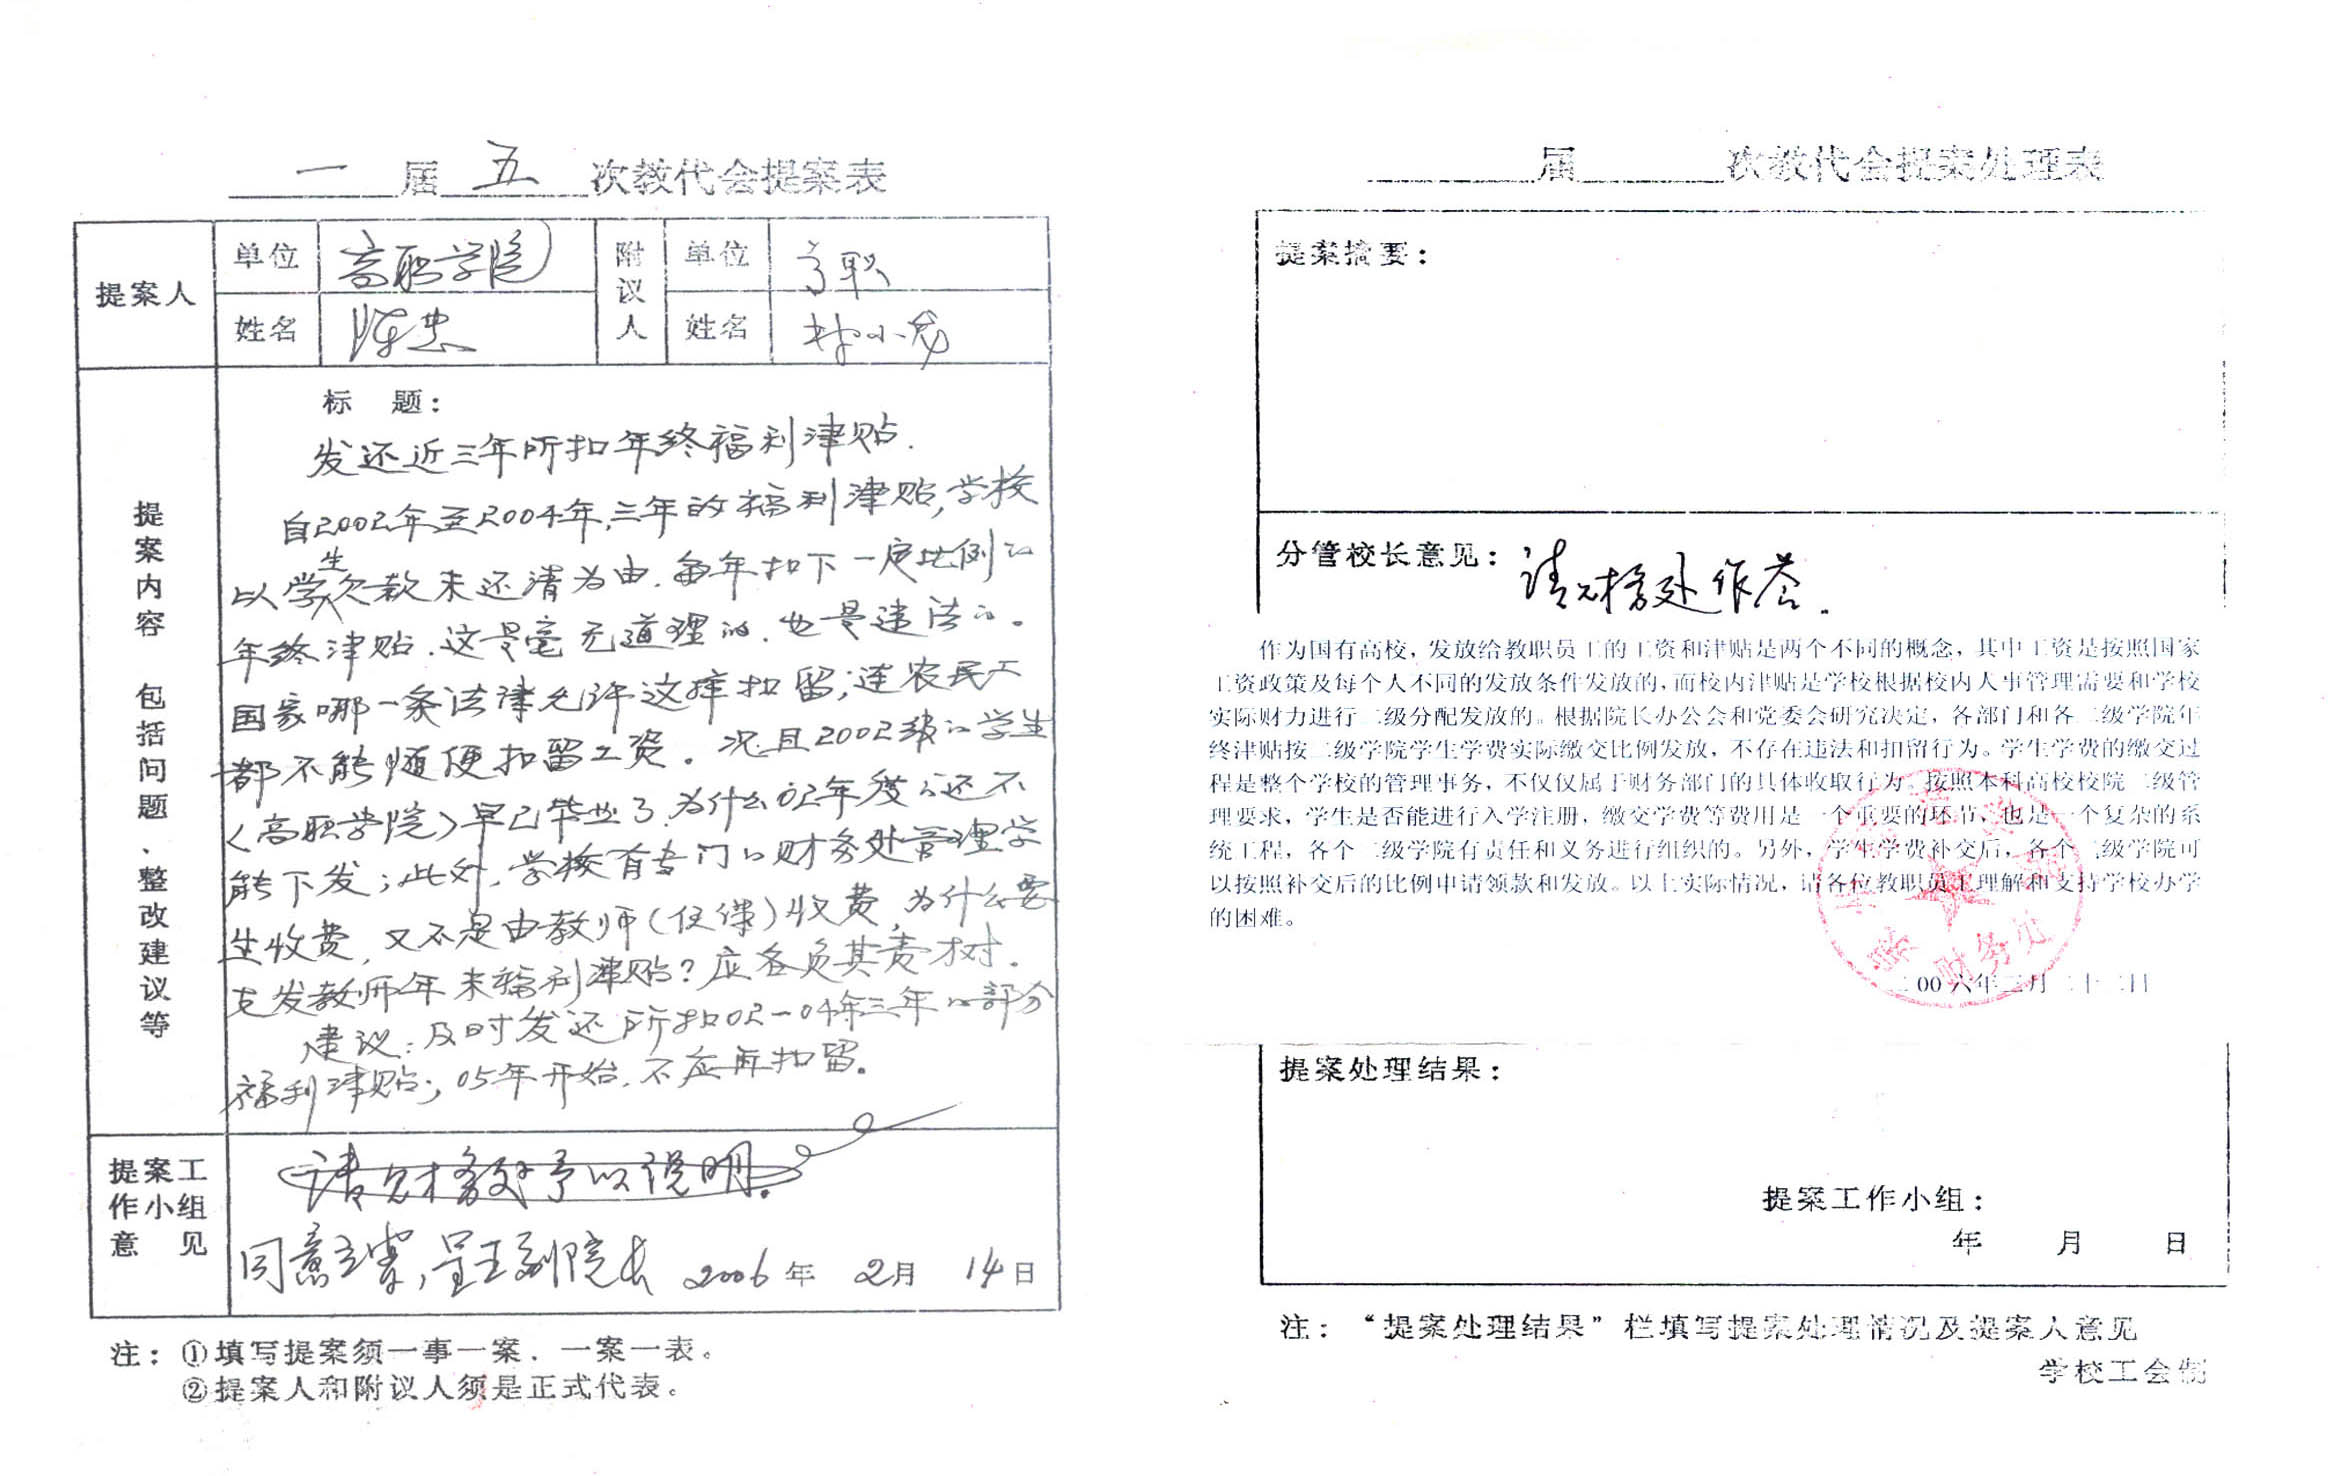 一届五次教代会提案表
提案人 单位 高职学院 附议人 单位 高职
姓名 陈忠 姓名 林小
提案内容 包括问题、整改建议等
标 题：
发还近三年所扣年终福利津贴.
自2002年至2004年,三年的福利津贴,学校
以学生欠款未还清为由,每年扣下一定比例的
年终津贴.这是毫无道理的.也是违法的。
国家哪一条法律允许这样扣留;连农民工
都不能随便扣留工资。况且2002级的学生
(高职学院)早已毕业了,为什么02年度的还不
能下发;此外,学校有专门的财务处管理学
生收费,又不是由教师(任课)收费,为什么要
克发教师年末福利津贴?应各负其责才对.
建议:及时发还所扣02-04年三年的部分
福利津贴;05年开始,不应再扣留。
提案工作小组意见
请财务处予以说明.
同意立案,呈王副院长 2006年 2月 14日
注：①填写提案须一事一案．一案一表。
②提案人和附议人须是正式代表。
届 次教代会提案处理表
提案摘要：
分管校长意见：请财务处作答.
作为国有高校，发放给教职员工的工资和津贴是两个不同的概念，其中工资是按照国家
工资政策及每个人不同的发放条件发放的，而校内津贴是学校根据校内人事管理需要和学校
实际财力进行二级分配发放的。根据院长办公会和党委会研究决定，各部门和各二级学院年
终津贴按二级学院学生学费实际缴交比例发放，不存在违法和扣留行为。学生学费的缴交过
程是整个学校的管理事务，不仅仅属于财务部门的具体收取行为。按照本科高校校院二级管
理要求，学生是否能进行入学注册，缴交学费等费用是一个重要的环节，也是一个复杂的系
统工程，各个二级学院有责任和义务进行组织的。另外，学生学费补交后，各个二级学院可
以按照补交后的比例申请领款和发放。以上实际情况，请各位教职员工理解和支持学校办学
的困难。
财务处
二00六年三月二十二日
提案处理结果：
提案工作小组：
年 月 日
注：“提案处理结果”栏填写提案处理情况及提案人意见
学校工会制